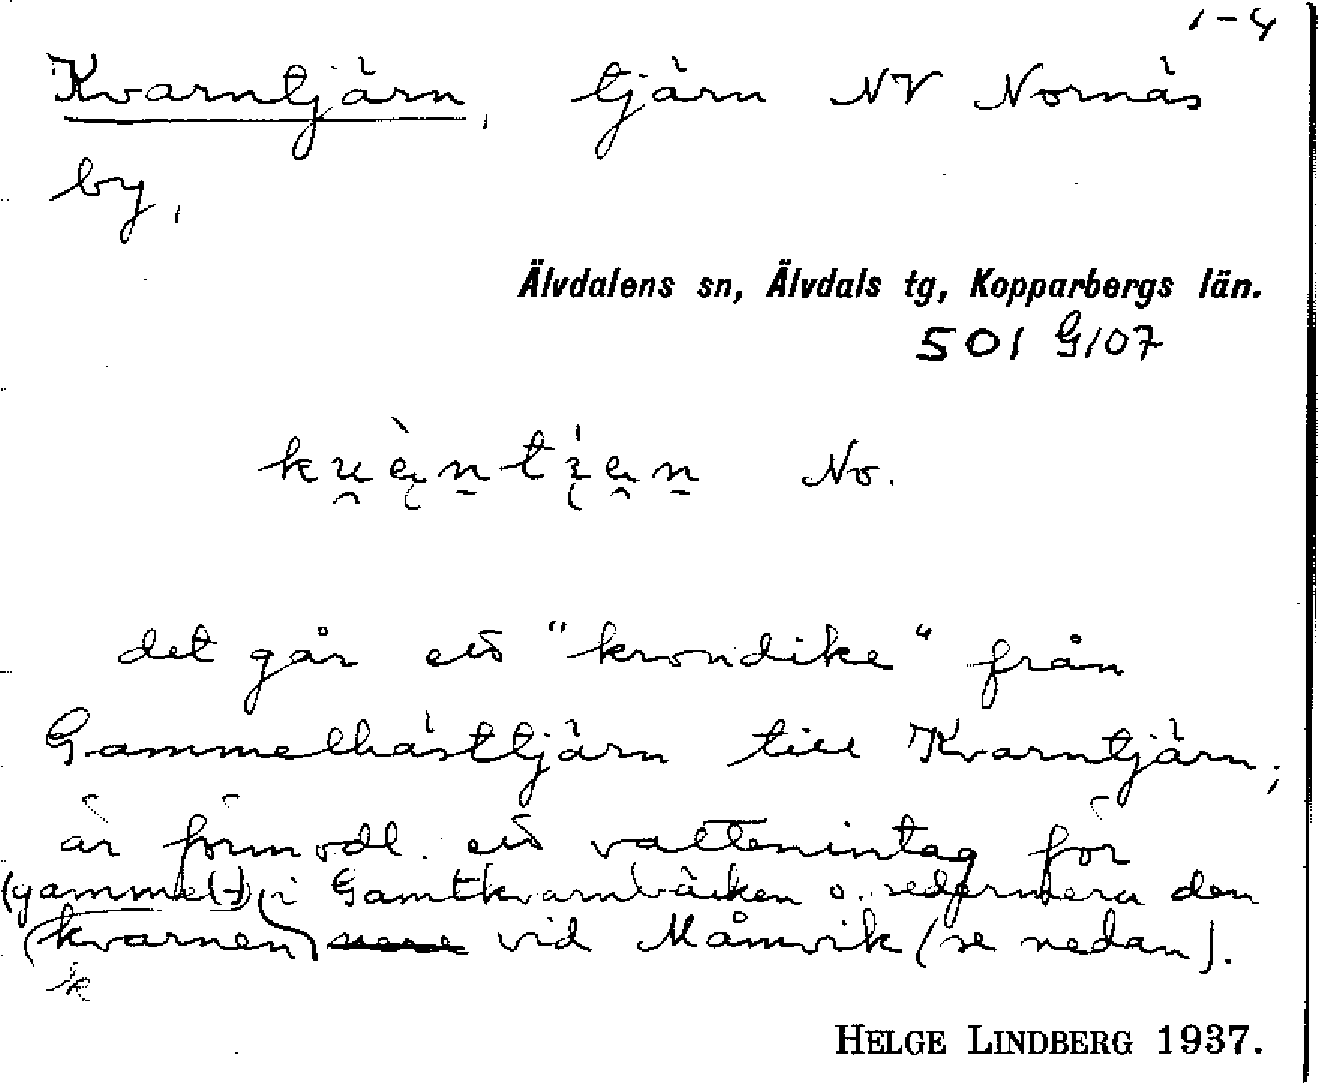 1-4
Kvarntjärn, tjärn NV Nornäs
by,
Älvdalens sn, Älvdals tg, Kopparbergs län.
501 G107
No.
det går ett "krondike" från
Gammelhästtjärn till Kvarntjärn;
är förmodl. ett vattenintag för
i Gamtkvarnbäcken o. den
kvarnen vid Månvik (se nedan).
k
HELGE LINDBERG 1937.